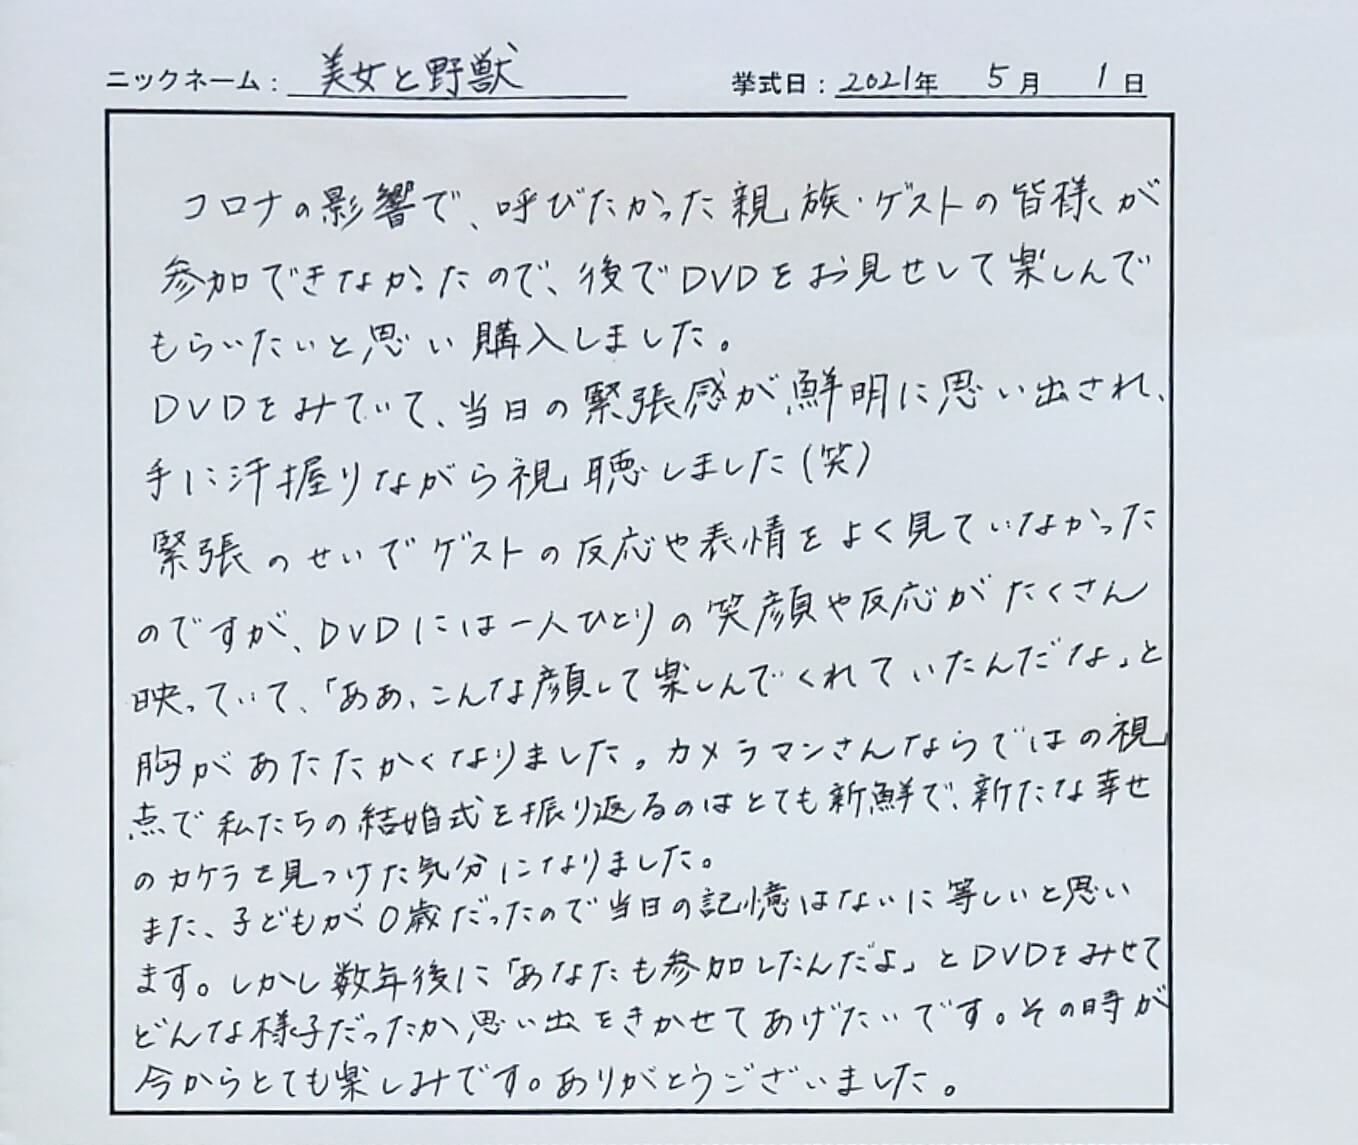 ニックネーム： 美女と野獣 挙式日：2021年 5月 1日
コロナの影響で、呼びたかった親族・ゲストの皆様が
参加できなかったので、後でDVDをお見せして楽しんで
もらいたいと思い購入しました。
DVDをみていて、当日の緊張感が鮮明に思い出され、
手に汗握りながら視聴しました(笑)
緊張のせいでゲストの反応や表情をよく見ていなかった
のですが、DVDには一人ひとりの笑顔や反応がたくさん
映っていて、「ああ、こんな顔して楽しんでくれていたんだな」と
胸があたたかくなりました。カメラマンさんならではの視
点で私たちの結婚式を振り返るのはとても新鮮で、新たな幸せ
のカケラを見つけた気分になりました。
また、子どもが0歳だったので当日の記憶はないに等しいと思い
ます。しかし数年後に「あなたも参加したんだよ」とDVDをみせて
どんな様子だったか、思い出をきかせてあげたいです。その時が
今からとても楽しみです。ありがとうございました。